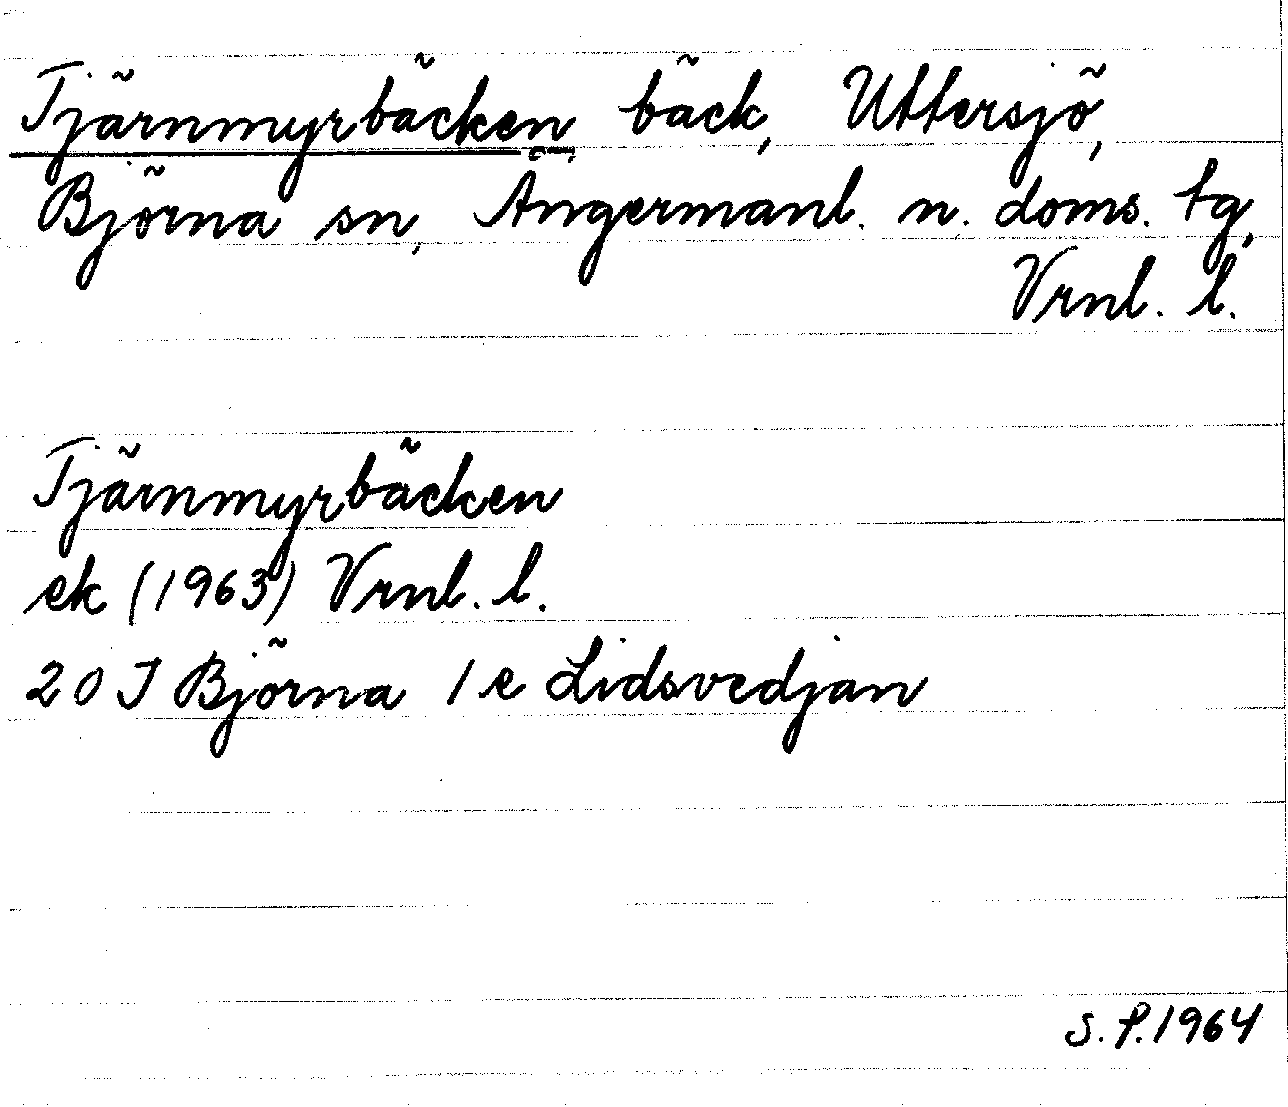 Tjärnmyrbäcken bäck, Uttersjö,
Björna sn, Ångermanl. n. doms. tg,
Vrnl. l.
Tjärnmyrbäcken
ek (1963) Vrnl. l.
20 J Björna 1 e Lidsvedjan
S. P. 1964